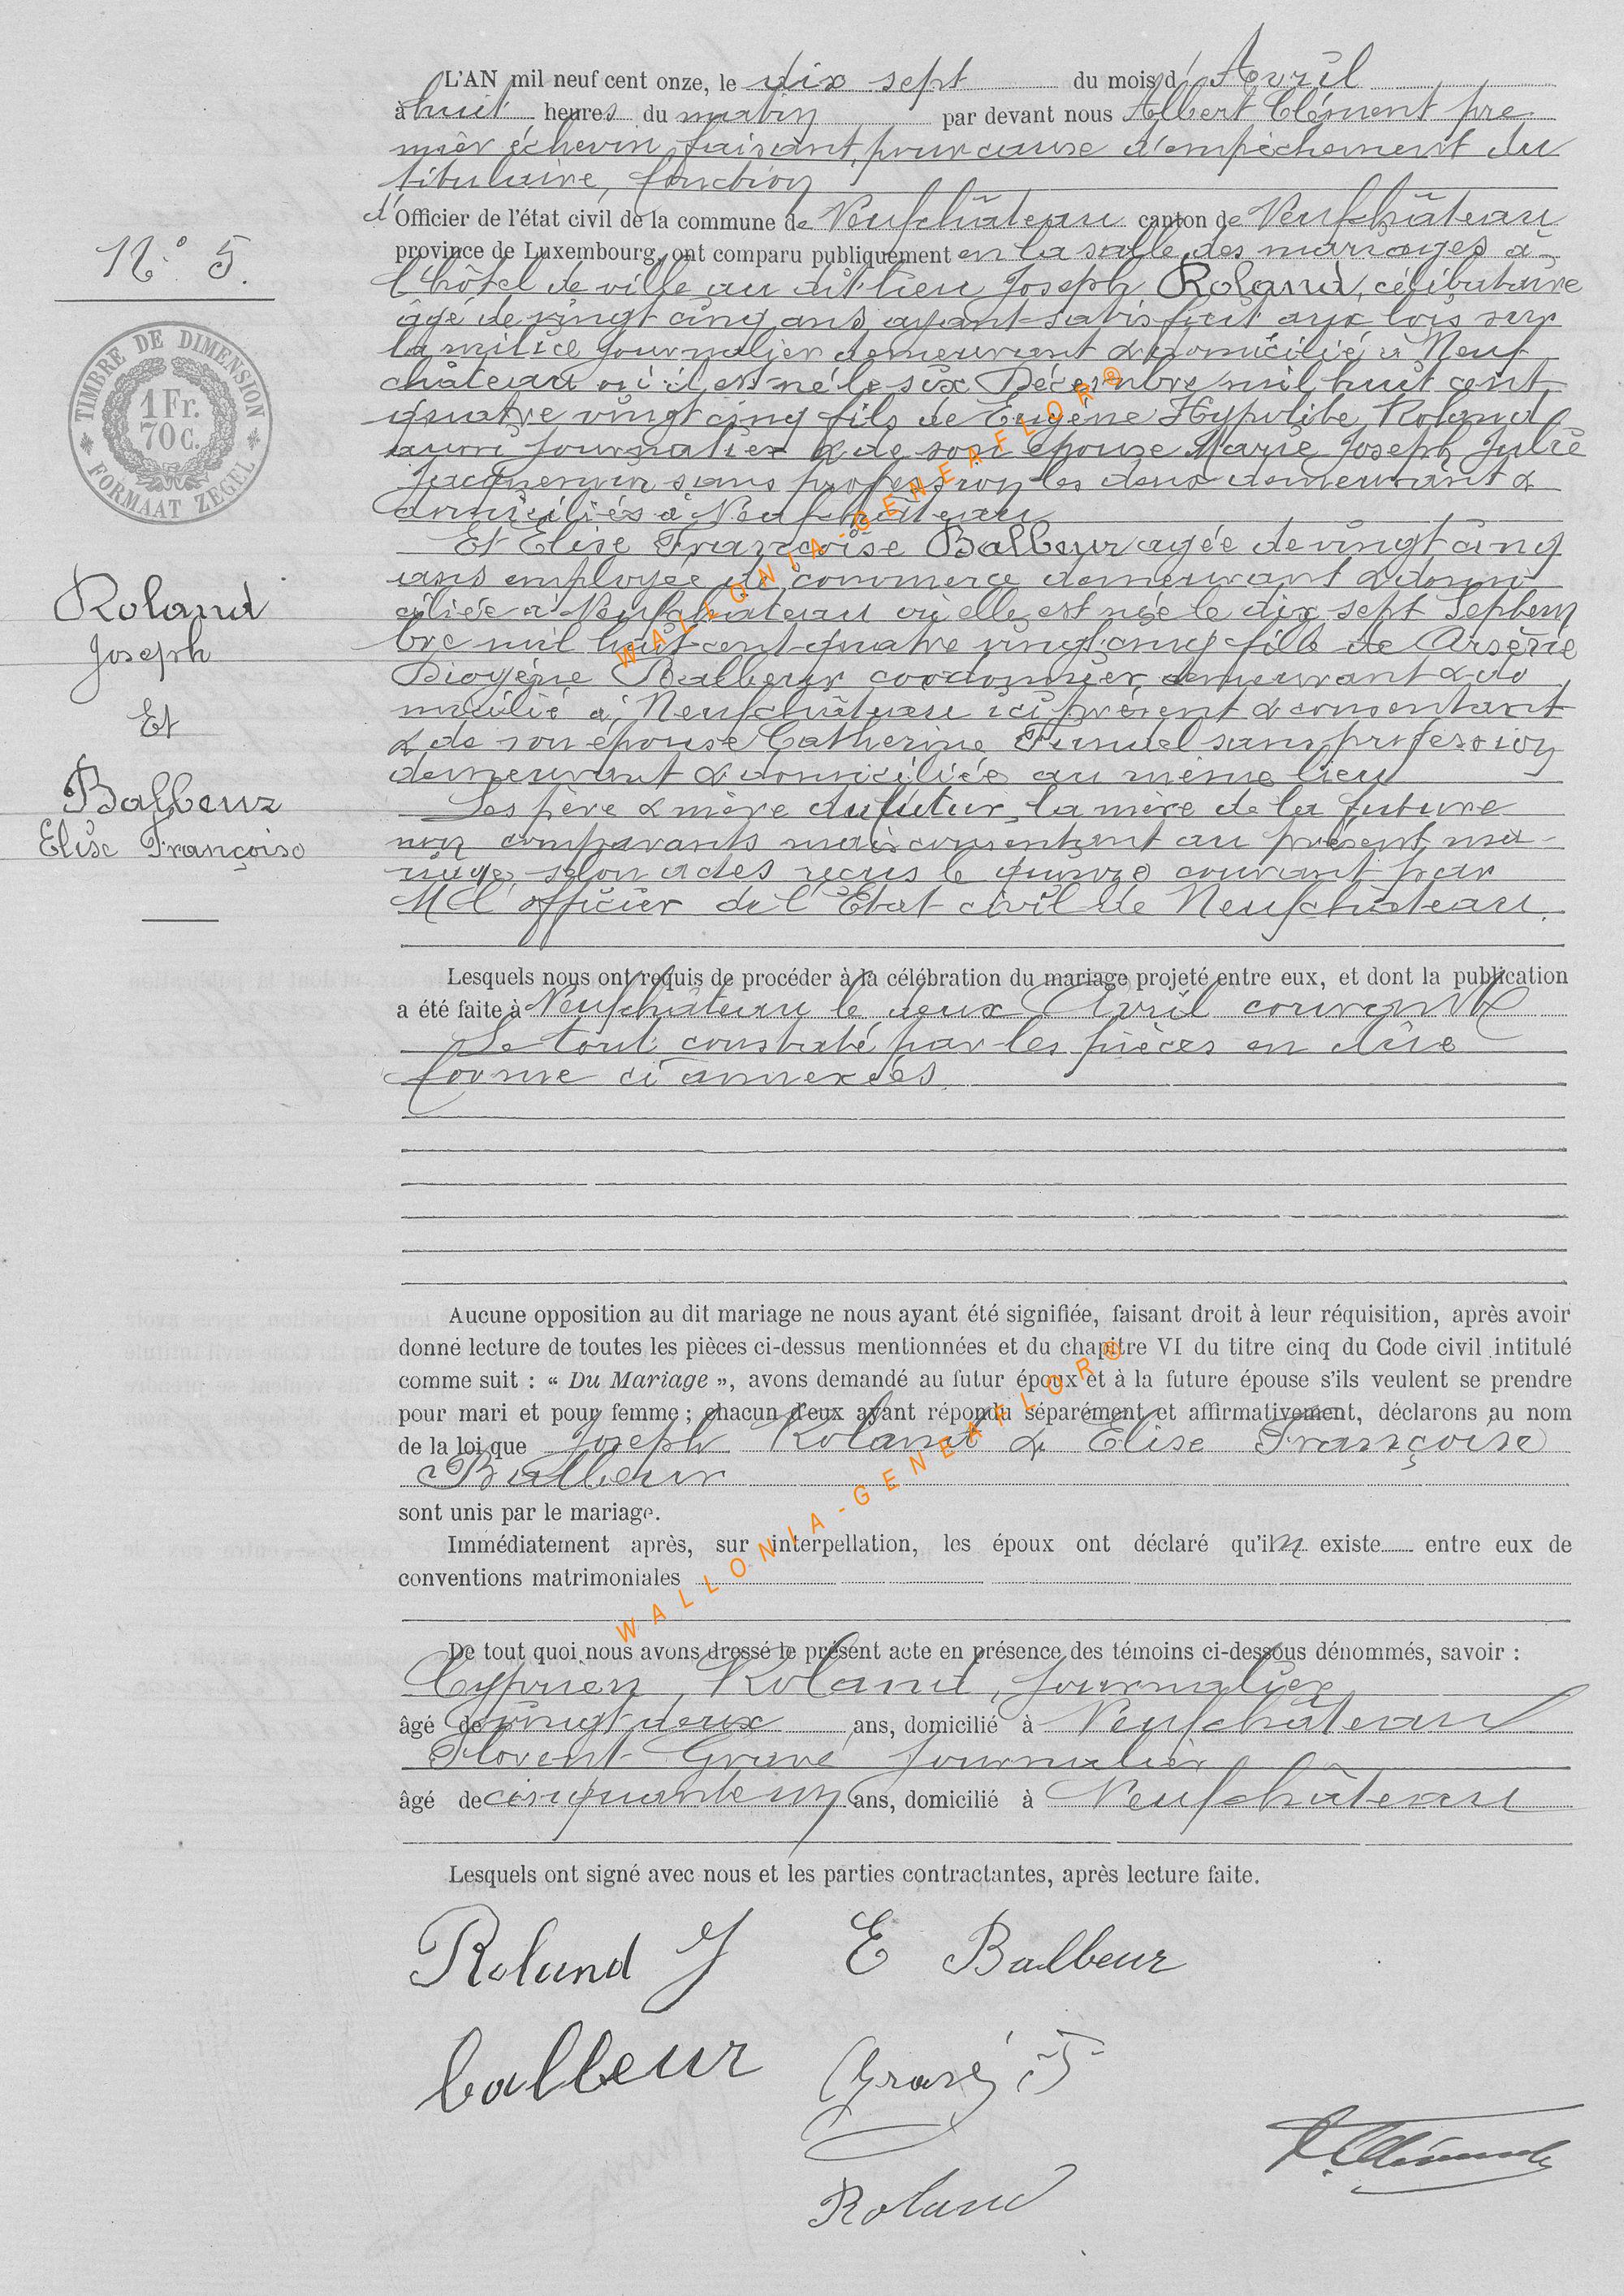 L'AN mil neuf cent onze, le dix sept du mois d' Avril
à huit heures du matin par devant nous Albert Clément pre
mier échevin faisant, pour cause d'empêchement du
titulaire, fonction
d'Officier de l'état civil de la commune de Neufchâteau canton de Neufchâteau
province de Luxembourg, ont comparu publiquement en la salle des mariages à
N.º 5.
l'hôtel de ville au dit lieu Joseph Roland, célibataire
âgé de vingt cinq ans, ayant satisfait aux lois sur
la milice journalier demeurant & domicilié à Neuf
château où il est né le six Décembre mil huit cent
quatre vingt cinq fils de Eugène Hypolite Roland
journalier & de son épouse Marie Joseph Julie
sans profession les deux demeurant &
domiciliés à Neufchâteau
TIMBRE DE DIMENSION
1 Fr.
70 c.
FORMAAT ZEGEL
Et Elise Françoise Balbeur agée de vingt cinq
ans employée de commerce demeurant & domi
ciliée à Neufchâteau où elle est née le dix sept Septem
bre mil huit cent quatre vingt cinq fille de Arsène
Diogène Balbeur cordonnier, demeurant & do
micilié à Neufchâteau ici présent & consentant
& de son épouse Catherine sans profession
demeurant & domiciliée au même lieu
Roland
Joseph
Et
Balbeur
Elise Françoise
Les père & mère du futur, la mère de la future
non comparants mais consentant au présent ma-
riage, selon actes reçus le quinze courant par
M l'officier de l'Etat civil de Neufchâteau.
Lesquels nous ont requis de procéder à la célébration du mariage projeté entre eux, et dont la publication
a été faite à Neufchâteau le deux Avril courant
Le tout constaté par les pièces en dûe
forme ci annexées
Aucune opposition au dit mariage ne nous ayant été signifiée, faisant droit à leur réquisition, après avoir
donné lecture de toutes les pièces ci-dessus mentionnées et du chapitre VI du titre cinq du Code civil intitulé
comme suit : « Du Mariage », avons demandé au futur époux et à la future épouse s'ils veulent se prendre
pour mari et pour femme ; chacun d'eux ayant répondu séparément et affirmativement, déclarons au nom
de la loi que Joseph Roland & Elise Françoise
Balbeur
sont unis par le mariage.
Immédiatement après, sur interpellation, les époux ont déclaré qu'il n existe entre eux de
conventions matrimoniales
De tout quoi nous avons dressé le présent acte en présence des témoins ci-dessous dénommés, savoir :
Cyprien Roland, journalier
âgé de vingt deux ans, domicilié à Neufchâteau
Florent Gravé journalier
âgé de cinquante un ans, domicilié à Neufchâteau
Lesquels ont signé avec nous et les parties contractantes, après lecture faite.
Roland J E Balbeur
balbeur Gravé F
Roland
WALLONIA-GENEAFLOR®
WALLONIA-GENEAFLOR®